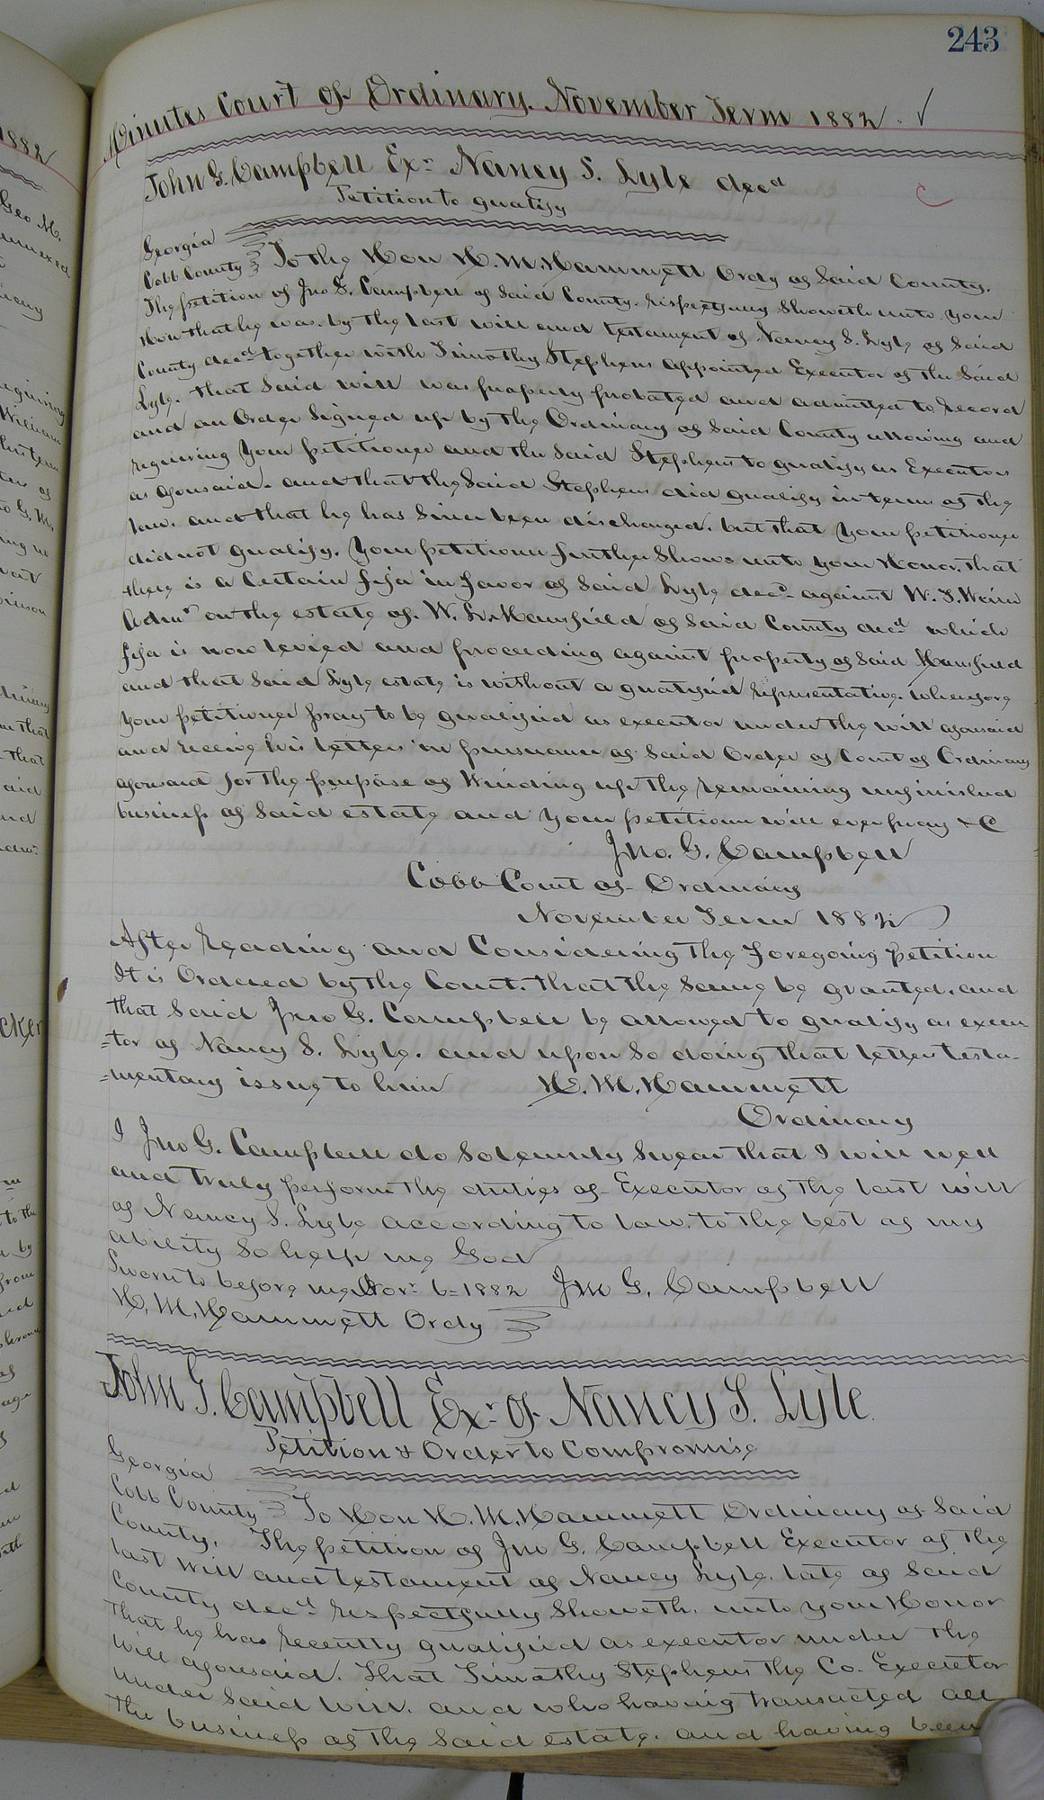 243
Minutes Court of Ordinary. November Term 1882.
John G. Campbell Exr Nancy S. Lyle decd
Petition to qualify
Georgia
Cobb County To the Hon H. M. Hammett Ordy of Said County.
The petition of Jno G. Campbell of Said County. respectfully Showeth unto your
Hon that he was. by the last will and testament of Nancy S. Lyle of Said
County decd together with Timothy Stephens appointed Executor of the Said
Lyle. that Said will was properly probated and admitted to record
and an Order Signed up by the Ordinary of Said County allowing and
requiring Your petitioner and the Said Stephens to qualify as Executors
as aforesaid. and that the Said Stephens did qualify in terms of the
law. and that he has Since been discharged. but that Your petitioner
did not qualify. Your petitioner further Shows unto your Honor. that
there is a Certain fifa in favor of Said Lyle decd against W. J. Winn
Admr on the estate of. W. L. Mansfield of Said County decd which
fifa is now levied and proceeding against property of Said Mansfield
and that Said Lyle estate is without a qualified representative. Wherefore
Your petitioner pray to be qualified as executor under the will aforesaid
and receive his letters in pursuance of Said Order of Court of Ordinary
aforesaid for the purpose of Winding up the remaining unfinished
business of Said estate and Your petitioner will ever pray &C
Jno. G. Campbell
Cobb Court of Ordinary
November Term 1882
After reading and Considering the foregoing petition
It is Ordered by the Court. that the Same be granted. and
that Said Jno G. Campbell be allowed to qualify as execu
=tor of Nancy S. Lyle. and upon So doing that letters testa-
=mentary issue to him H. M. Hammett
Ordinary
I Jno G. Campbell do Solemnly Swear that I will well
and truly perform the duties of Executor of the last will
of Nancy S. Lyle according to law. to the best of my
ability So help me God
Sworn to before me Novr 6=1882 Jno G. Campbell
H. M. Hammett Ordy
John G. Campbell Exr of Nancy S. Lyle.
Petition & Order to Compromise
Georgia
Cobb County To Hon H. M. Hammett Ordinary of Said
County. The petition of Jno G. Campbell Executor of the
last Will and testament of Nancy Lyle. late of Said
County decd respectfully Showeth. unto your Honor
That he has recently qualified as executor under the
Will aforesaid. That Timothy Stephens the Co. Executor
under Said Will. and who having transacted all
the business of the Said estate. and having been